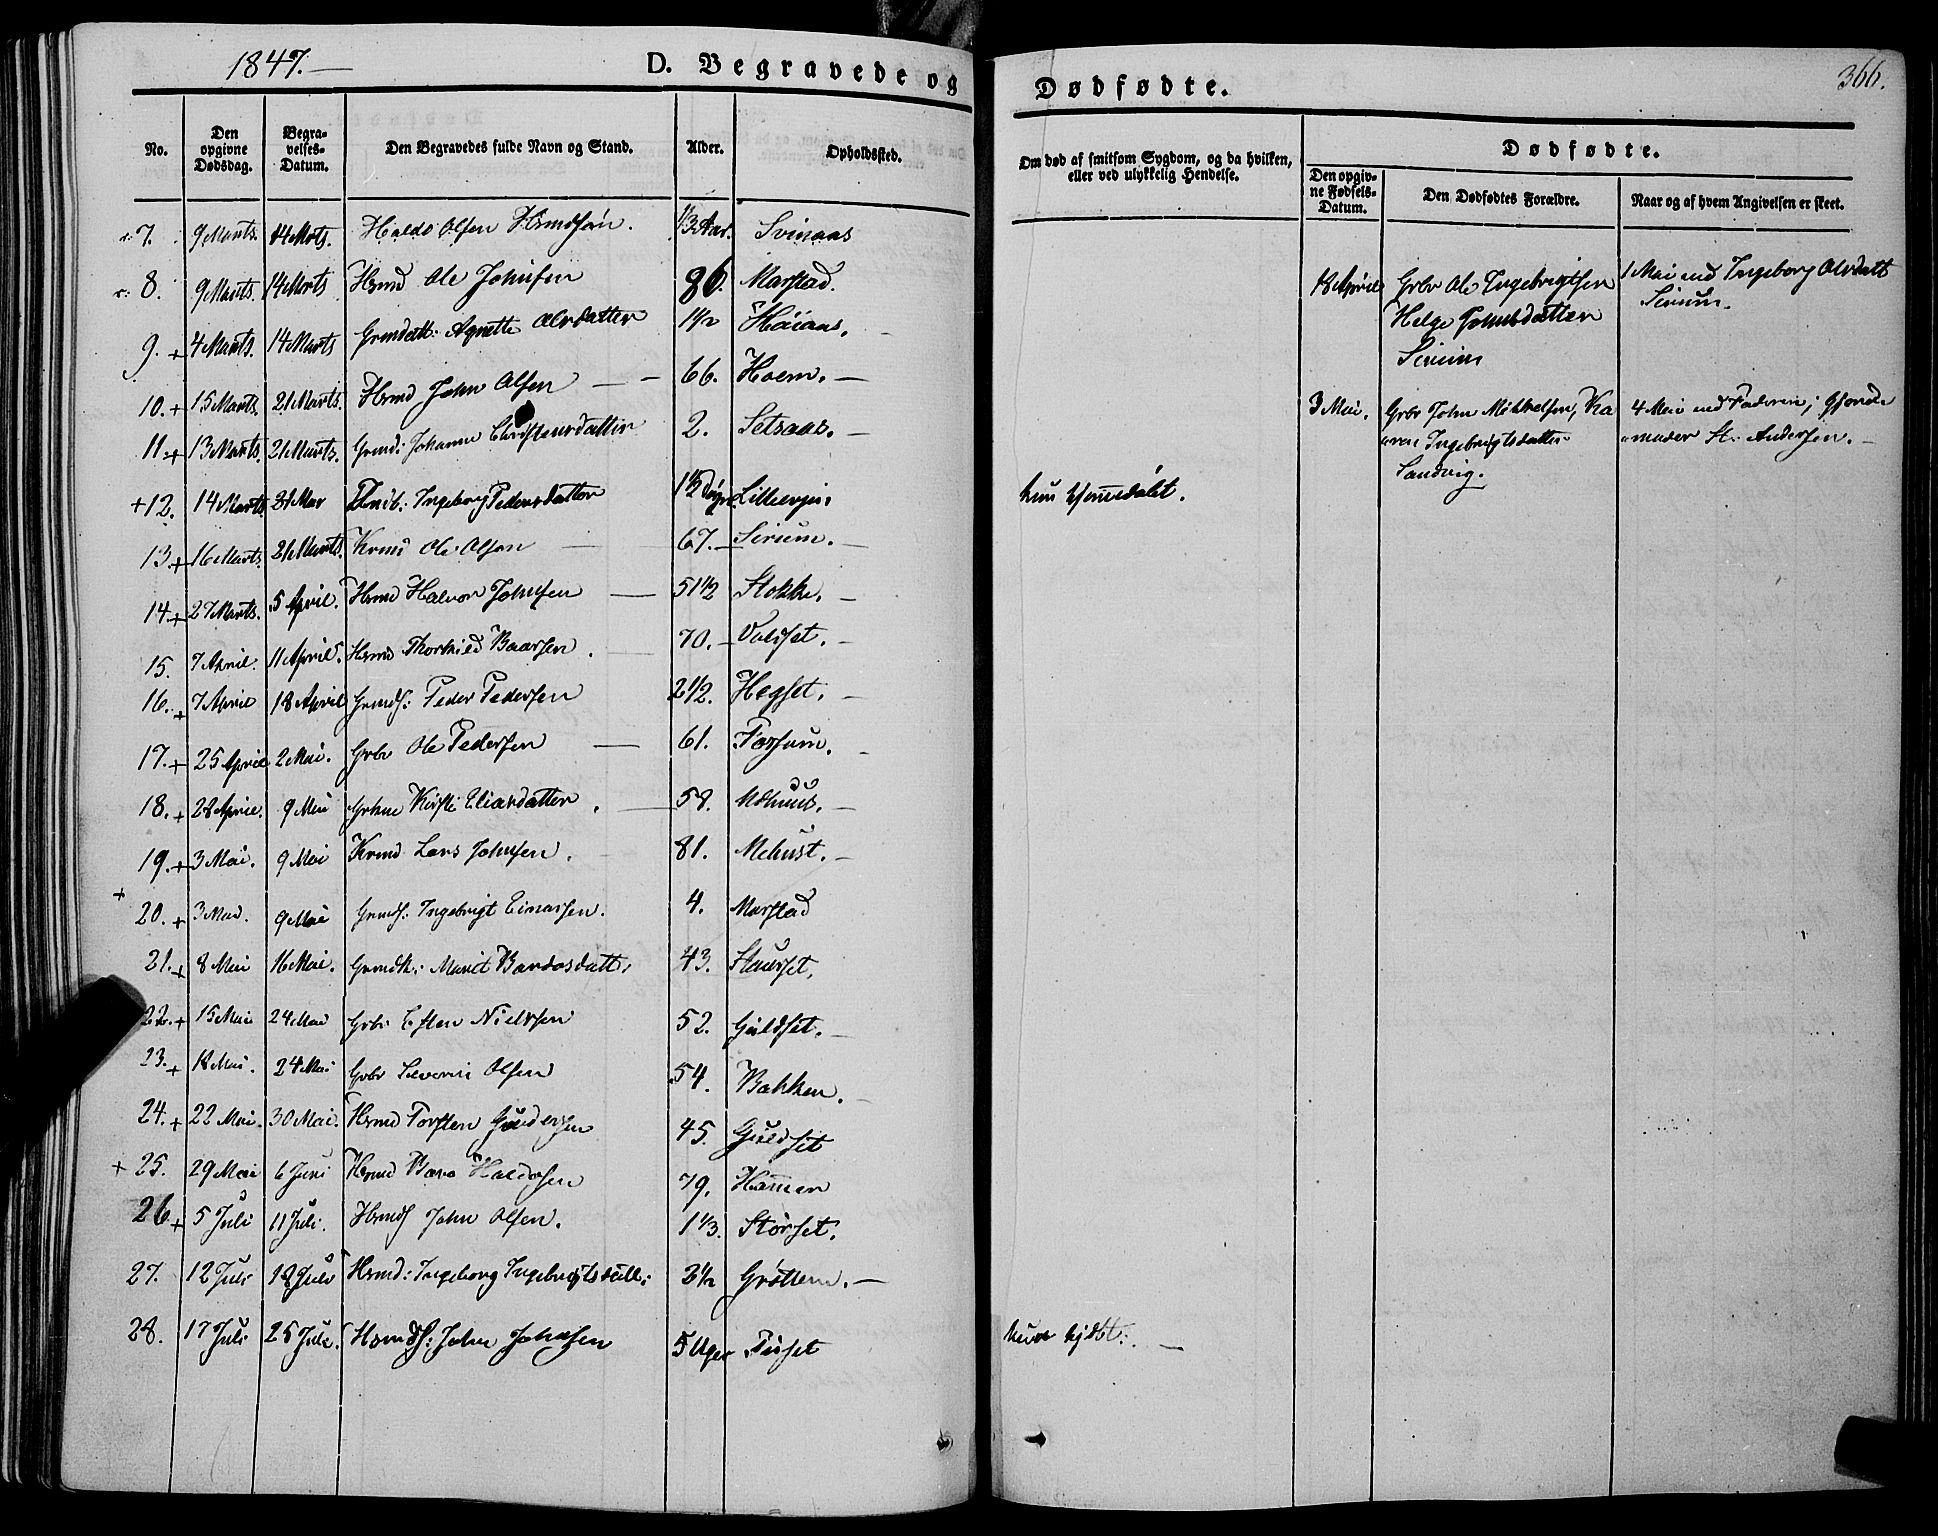 1847.—
D. Begravede og
No.
Den opgivne Dødsdag.
Begra-velses-Datum.
Den Begravedes fulde Navn og Stand.
Alder.
Opholdssted.
7. 9 Marts. 14 Mrts. Haldo Olsen 1/3 Aar. Svinaas
8. 9 Marts. 14 Mrts Hsmd Ole Johnsen 86. Marstad.
9. + 4 Marts. 14 Marts Agnethe Olsdatter 1 1/2 Høiaas.
10. + 15 Marts. 21 Marts. Hsmd John Olsen — — 66. Hoem. —
11. + 13 Marts. 21 Marts. Johanne Christensdatter 2. Setsaas. —
+ 12. 14 Marts 21 Mar Ingeborg Pedersdatter 1 1/2 Døgn. Lillevjen
13. + 16 Marts. 21 Marts. Ole Olsen — 67. — Sirum. —
14. + 27 Marts. 5 April. Hsmd Halvor Johnsen — 51 1/2 Stokke. —
15. 7 April. 11 April. Hsmd Thorkild Baarsen. 70. — Valset. —
16. + 7 April 18 April Grmds: Peder Pedersen 2 1/2. Hegset. —
17. + 25 April 2 Mai. Grbr Ole Pedersen — 61. Forsum. —
18. + 28 April. 9 Mai Kirsti Eliasdatter. — 58. —
19. + 3 Mai. 9 Mai Lars Johnsen. 81. Mehust. —
+ 20. + 3 Mai. 9 Mai Grmds: Ingebrigt Einarsen. 4. Marstad
21. + 8 Mai 16 Mai. Marit Bardosdatt: 43. Staurset.
22. + 15 Mai 24 Mai Grbr Esten Nielsen 52. Guldset. —
23. + 18 Mai. 24 Mai Grbr Severin Olsen 54. Bakken. —
24. + 22 Mai. 30 Mai. Hsmd Torsten Gundersen 45. Guldset
+ 25. 29 Mai 6 Juni Hsmd Haldosen 79. Hammer
26 + 5 Juli 11 Juli. Hsmds John Olsen. 1 1/3. Storset.
27. 12 Juli 18 Juli Hsmd: Ingeborg Ingebrigtsdatt: 2 1/2 Grøttem. —
28. 17 Juli 25 Juli. Hsmds: John Johnsen 5 Uger Tiset
Dødfødte.
366.
Om død af smitsom Sygdom, og da hvilken,
eller ved ulykkelig Hendelse.
Dødfødte.
Den opgiv-ne Fødsels-Datum.
Den Dødfødtes Forældre.
Naar og af hvem Angivelsen er skeet.
18 April Grbr Ole Ingebrigtsen
Helge Johnsdatter
Sirum
1 Mai ved Ingeborg Olsdatt
Sirum.
3 Mai. Grbr John Mikkelsen, Ka
ren Ingebrigtsdatter
Sandvig.
4 Mai ved Faderen; Gjorde
moder St. Andersen. —
kun hjemmedøbt.
kun hjdbt: —